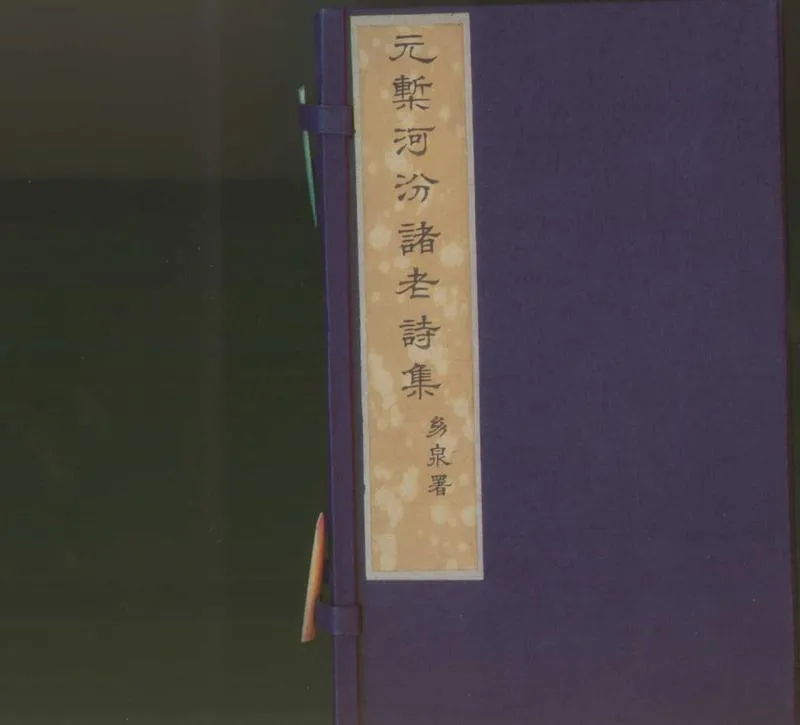 元槧河汾諸老詩集
彡泉署